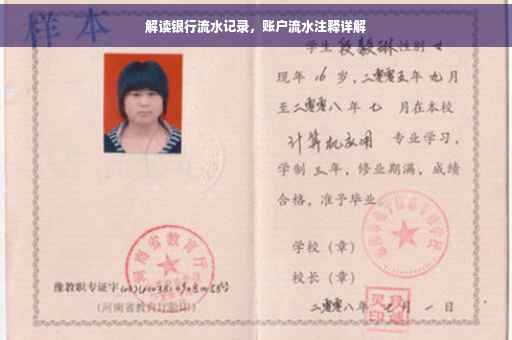 解读银行流水记录，账户流水注释详解
样本
学生段毅琳性别女
现年16岁，二零零五年九月
至二零零八年七月在本校
计算机应用 专业学习，
学制三年，修业期满，成绩
合格，准予毕业
学校（章）
校长（章）
二零零八年七月一日
河南省教育厅
豫教职专证字
（河南省教育厅验印）